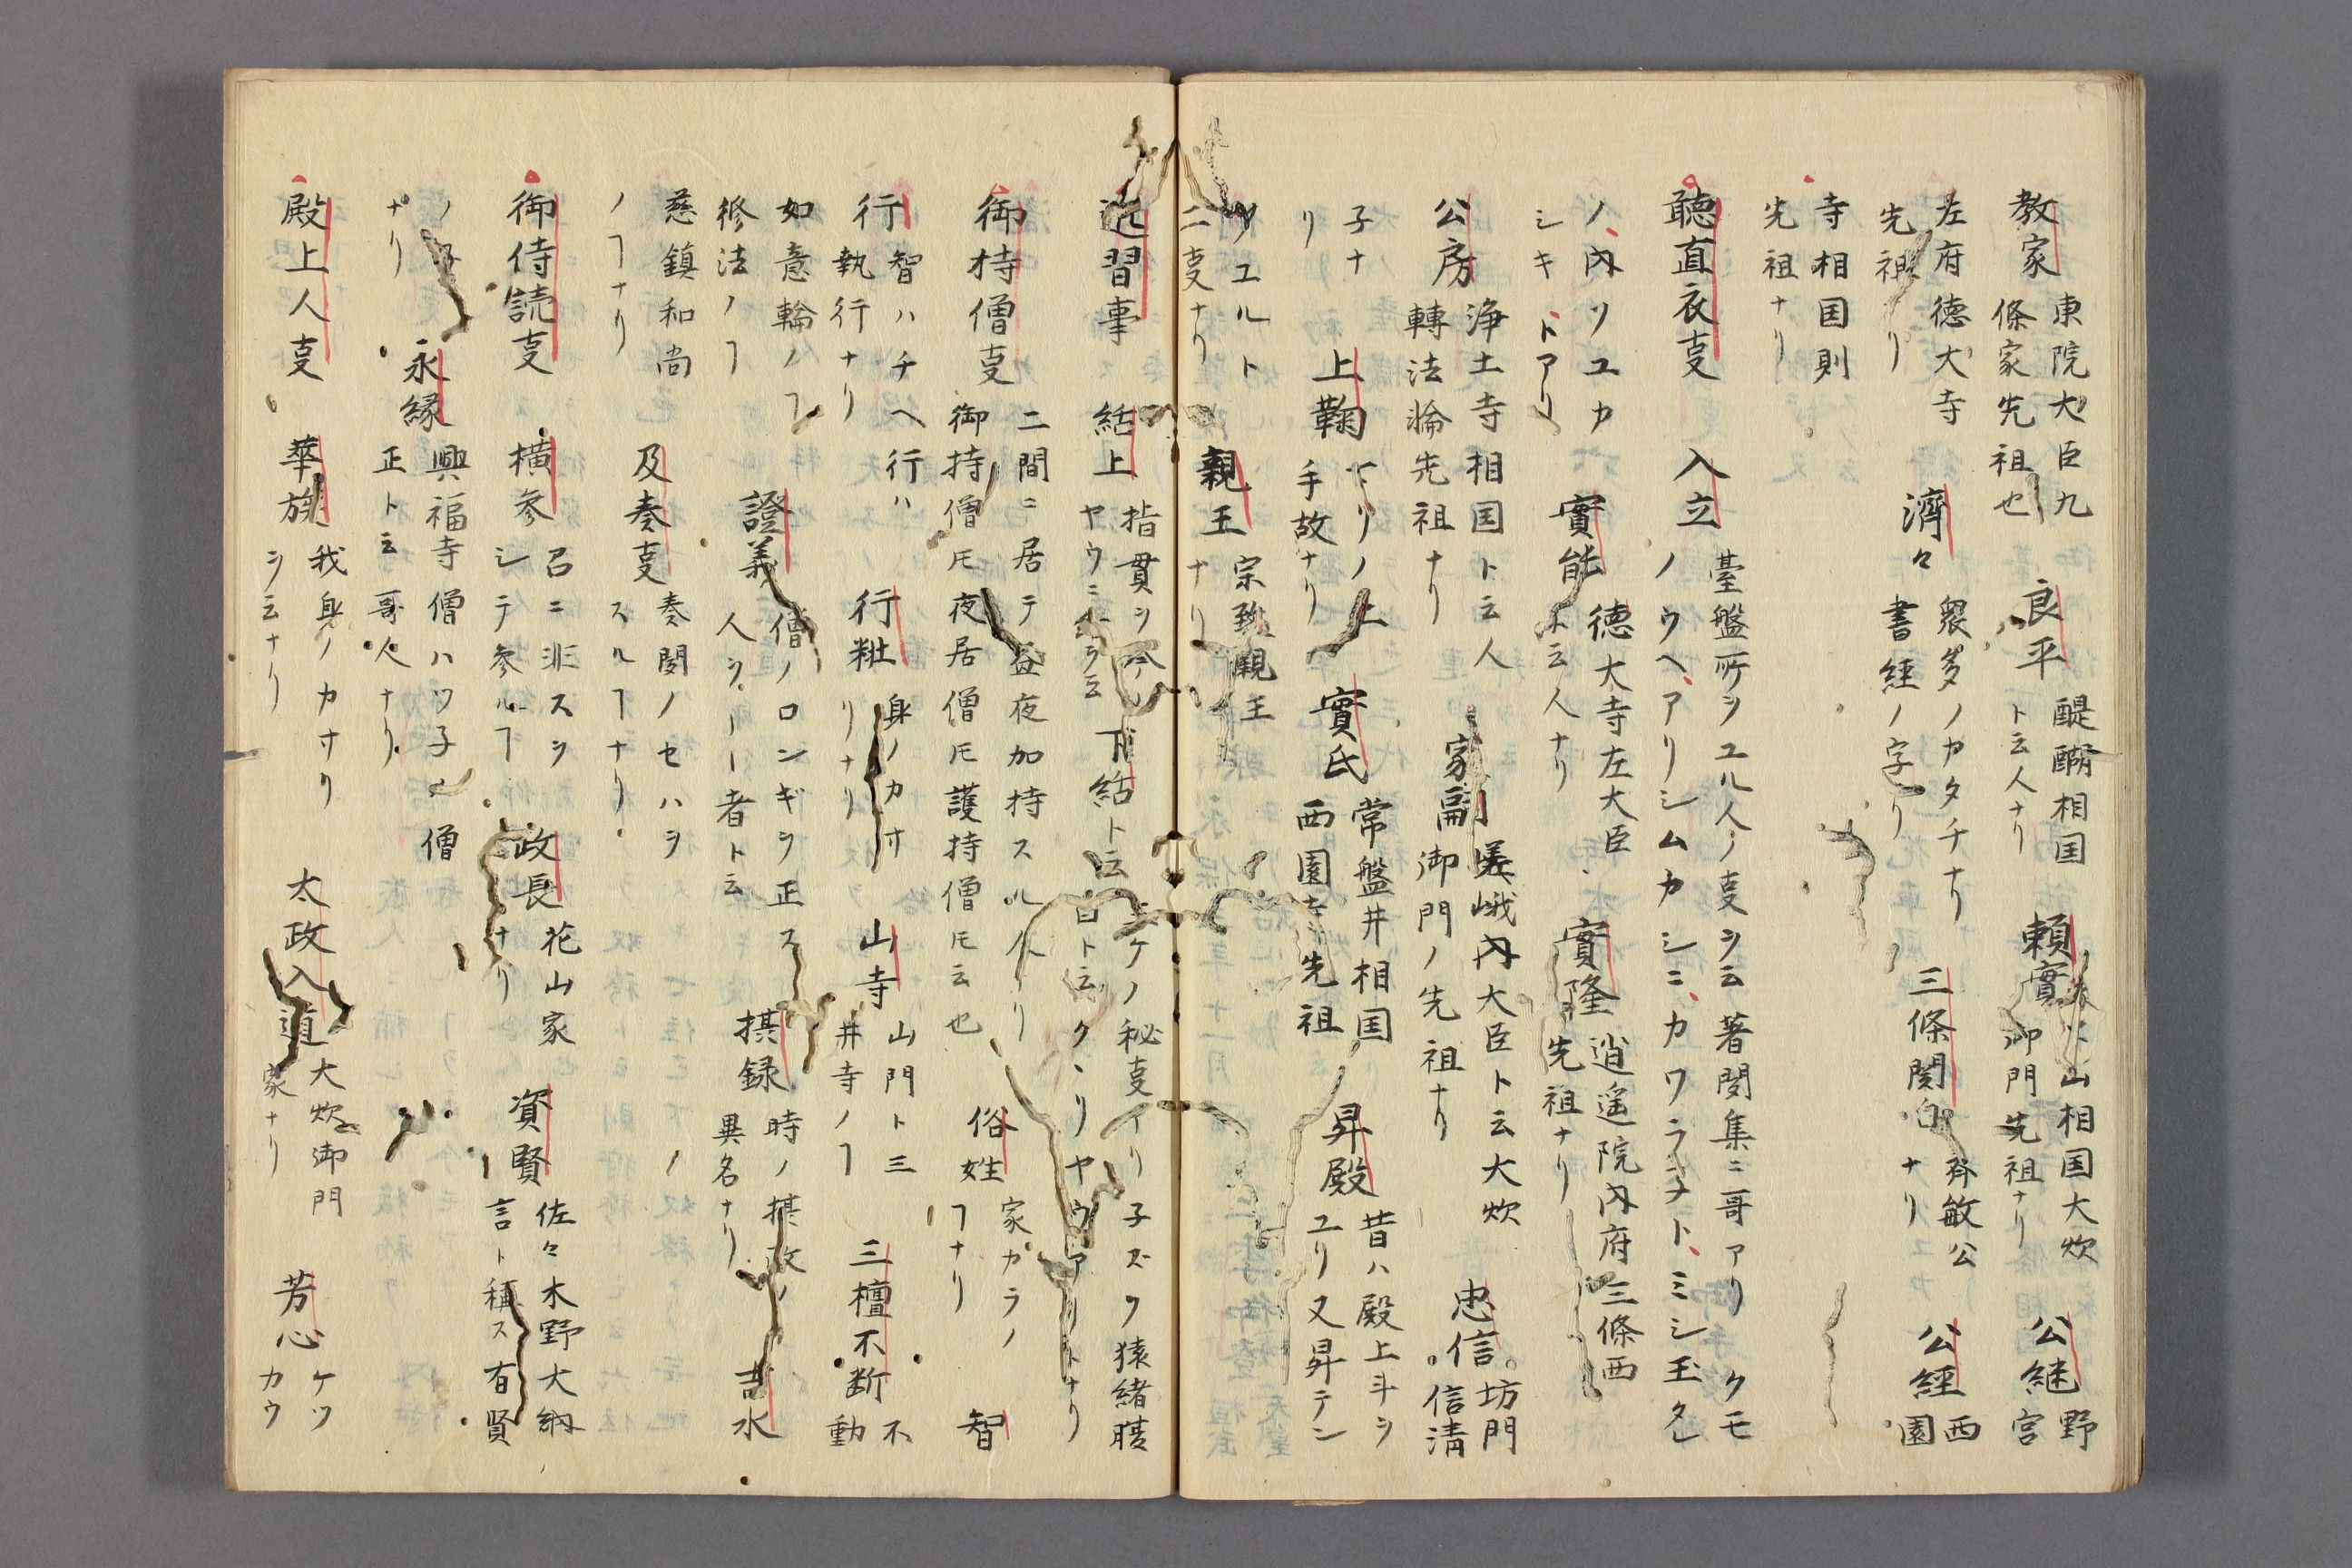 教家 東院大臣九
條家先祖也 良平 醍醐相国
ト云人ナリ 頼實 山相国大炊
御門先祖ナリ 公継 野
宮
左府徳大寺
先祖ナリ 濟々 衆多ノカタチナリ
書経ノ字ナリ 三條関白 敏公
ナリ 公経 西
園
寺相国則
先祖ナリ
聴直衣支 入立 臺盤所ヲユル人ノ支ヲ云著聞集ニ哥アリ クモ
ノウヘアリシムカシニカワラネト、ミシ玉タレ
ノ内ソユカ
シキトアリ 實能 徳大寺左大臣
ト云人ナリ 實隆 逍遥院内府三條西
先祖ナリ
公房 浄土寺相国ト云人
轉法輪先祖ナリ 家嗣 嵯峨内大臣ト云大炊
御門ノ先祖ナリ 忠信 坊門
信清
子ナ
リ 上鞠 マリノ上
手故ナリ 實氏 常盤井相国
西園寺先祖 昇殿 昔ハ殿上斗ヲ
ユリ又昇テン
ツユルト
二支ナリ 親王 宗親王
ナリ
近習事 結上 指貫ヲ
ヤウニ云 下結ト云 ケノ秘支
リ子ズク猿緒䐈
ト云クヽリヤウアリトナリ
御持僧支 二間ニ居テ昼夜加持スル人ナリ
御持僧モ夜居僧モ護持僧モ云也 俗姓 家カラノ
ヿナリ 智
行 智ハチヘ行ハ
執行ナリ 行粧 身ノカサ
リナリ 山寺 山門ト三
井寺ノヿ 三檀不断 不
動
如意輪ノヿ
修法ノヿ 證義 僧ノロンギヲ正ス
人ヲ者ト云 摂録 時ノ摂政ノ
異名ナリ 吉水
慈鎮和尚
ノヿナリ 及奏支 奏聞ノセハヲ
スルヿナリ
御侍読支 横参 召ニ非スシ
シテ参ルヿ 政長 花山家
ナリ 資賢 佐々木野大納
言ト稱ス有賢
ノ子
ナリ 永縁 興福寺僧ハツ子 僧
正ト云哥人ナリ
殿上人支 華族 我身ノカサリ
ヲ云ナリ 太政入道 大炊御門
家ナリ 芳心 ケツ
カウ